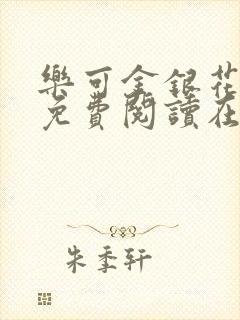 樂可金銀花
免費閱讀在
朱季軒